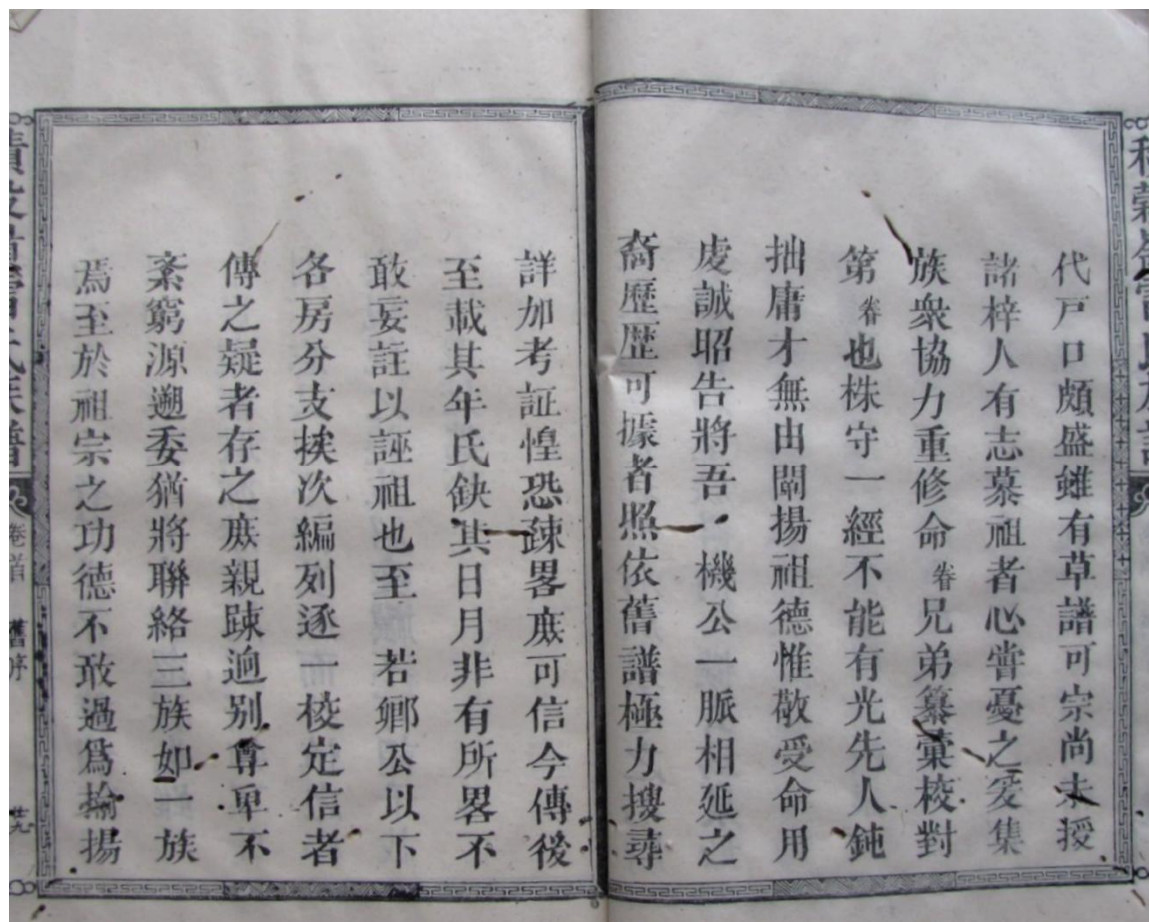 代戸口頗盛雖有草譜可宗尚未授
諸梓人有志慕祖者心嘗憂之爰集
族衆協力重修命 卷 兄弟纂彙校對
第 卷 也株守一經不能有光先人鈍
拙庸才無由闡揚祖德惟敬受命用
虔誠昭告將吾 機公一脈相延之
裔歷歷可據者照依舊譜極力搜尋
詳加考証惶恐踈畧庶可信今傳後
至載其年氏缺其日月非有所畧不
敢妄註以誣祖也至 若鄉公以下
各房分支挨次編列逐一校定信者
傳之疑者存之庶親踈逈别尊卑不
紊窮源遡委猶將聯絡三族如一族
焉至於祖宗之功德不敢過爲揄揚
氏族譜
卷首
舊序
廿九